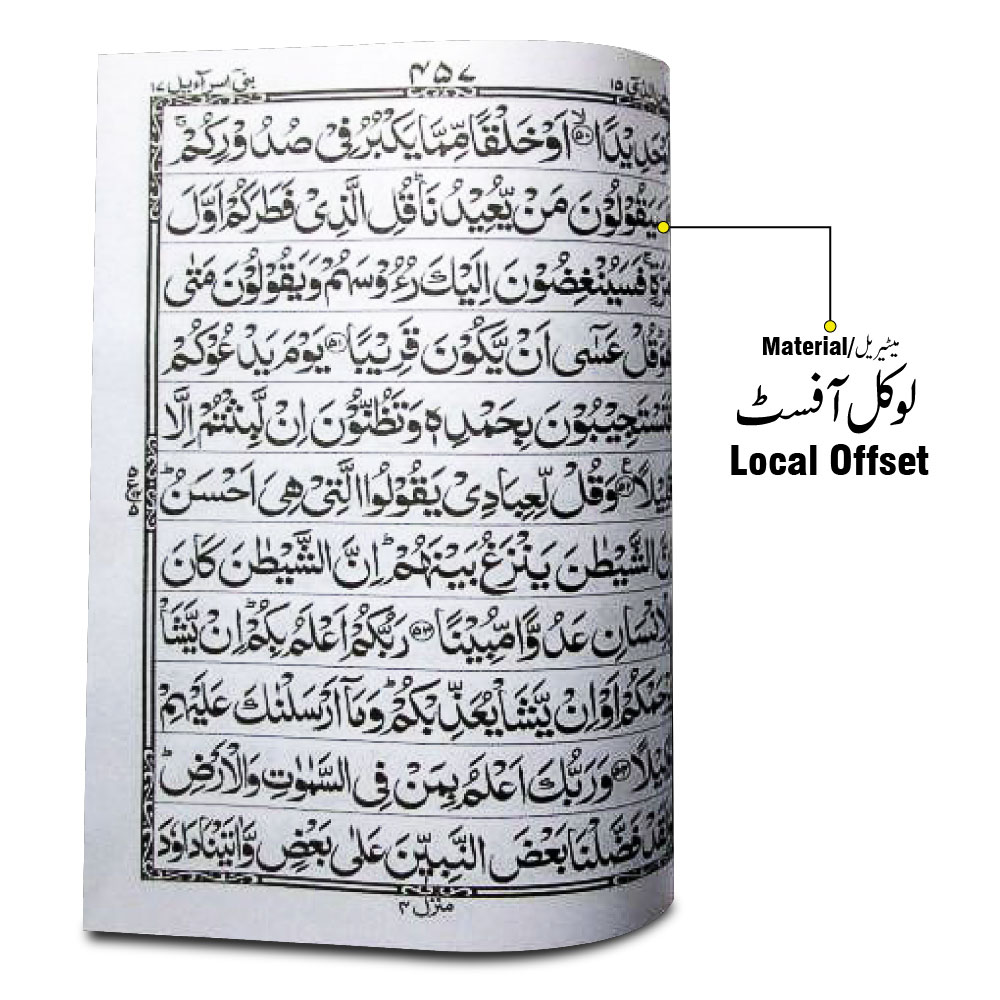 بنیٓ اسرآءیل ١٧
۴۵۷
١٥
حَدِيْدًا ۙ﴿۵۰﴾ اَوْ خَلْقًا مِّمَّا يَكْبُرُ فِيْ صُدُوْرِكُمْ ۚ
سَيَقُوْلُوْنَ مَنْ يُّعِيْدُنَا ؕ قُلِ الَّذِيْ فَطَرَكُمْ اَوَّلَ
مَرَّةٍ ۚ فَسَيُنْغِضُوْنَ اِلَيْكَ رُءُوْسَهُمْ وَيَقُوْلُوْنَ مَتٰى
هُوَ ؕ قُلْ عَسٰٓى اَنْ يَّكُوْنَ قَرِيْبًا ﴿۵۱﴾ يَوْمَ يَدْعُوْكُمْ
فَتَسْتَجِيْبُوْنَ بِحَمْدِهٖ وَتَظُنُّوْنَ اِنْ لَّبِثْتُمْ اِلَّا
قَلِيْلًا ﴿۵۲﴾ وَقُلْ لِّعِبَادِيْ يَقُوْلُوا الَّتِيْ هِيَ اَحْسَنُ ؕ
اِنَّ الشَّيْطٰنَ يَنْزَغُ بَيْنَهُمْ ؕ اِنَّ الشَّيْطٰنَ كَانَ
لِلْاِنْسَانِ عَدُوًّا مُّبِيْنًا ﴿۵۳﴾ رَبُّكُمْ اَعْلَمُ بِكُمْ ؕ اِنْ يَّشَاْ
يَرْحَمْكُمْ اَوْ اِنْ يَّشَاْ يُعَذِّبْكُمْ ؕ وَمَاۤ اَرْسَلْنٰكَ عَلَيْهِمْ
وَكِيْلًا ﴿۵۴﴾ وَرَبُّكَ اَعْلَمُ بِمَنْ فِي السَّمٰوٰتِ وَالْاَرْضِ ؕ
وَلَقَدْ فَضَّلْنَا بَعْضَ النَّبِيّٖنَ عَلٰى بَعْضٍ وَّاٰتَيْنَا دَاوٗدَ
منزل ۴
Material/میٹیریل
لوکل آفسٹ
Local Offset